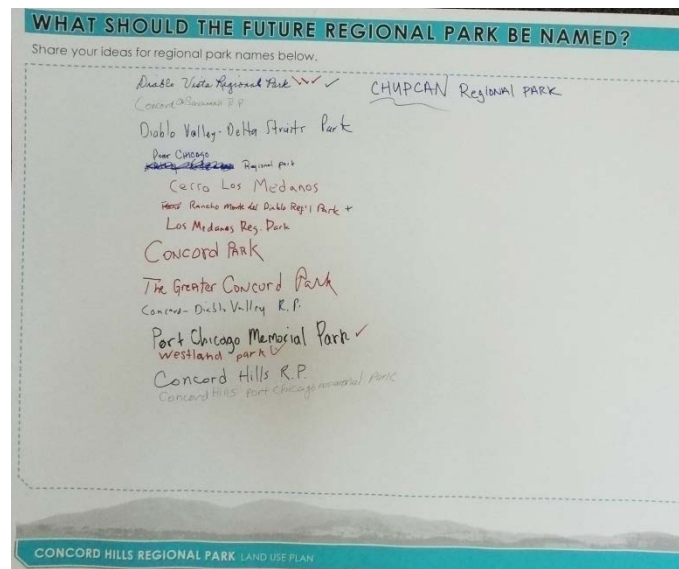 WHAT SHOULD THE FUTURE REGIONAL PARK BE NAMED?
Share your ideas for regional park names below.
Diablo Vista Regional Park
Concord R.P.
Diablo Valley-Delta Straits Park
Port Chicago
Regional park
Cerro Los Medanos
Rancho Monte del Diablo Reg'l Park +
Los Medanos Reg. Park
Concord PARK
The Greater Concord Park
Concord-Diablo Valley R.P.
Port Chicago Memorial Park
Westland park
Concord Hills R.P.
Concord Hills Port Chicago memorial Park
CHUPCAN Regional PARK
CONCORD HILLS REGIONAL PARK LAND USE PLAN